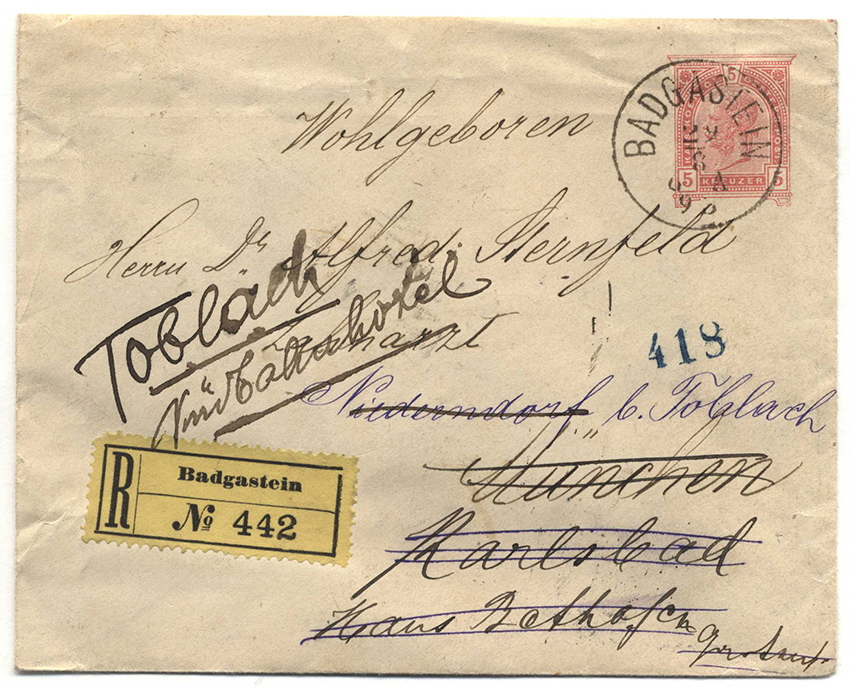 Wohlgeboren
5
KREUZER
5 5
BADGASTEIN
Herrn Dr. Alfred Sternfeld
Toblach
Zahnarzt
Südbahnhotel
418
Niederndorf b. Toblach
München
R
Badgastein
№ 442
Karlsbad
Haus Bethofen